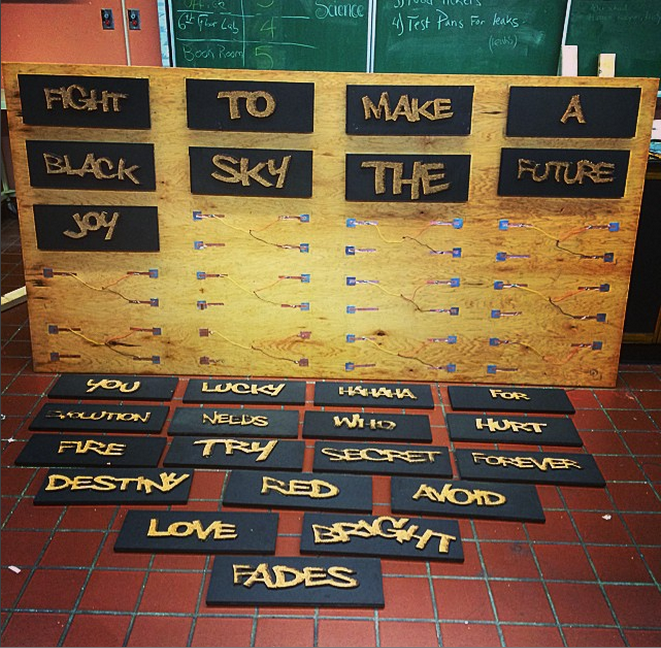 Science
6th Floor Lab 5
Book Room 5
4) Test Pans For leaks
FIGHT TO MAKE A
BLACK SKY THE FUTURE
JOY
YOU LUCKY HAHAHA FOR
EVOLUTION NEEDS WHO HURT
FIRE TRY SECRET FOREVER
DESTINY RED AVOID
LOVE BRIGHT
FADES